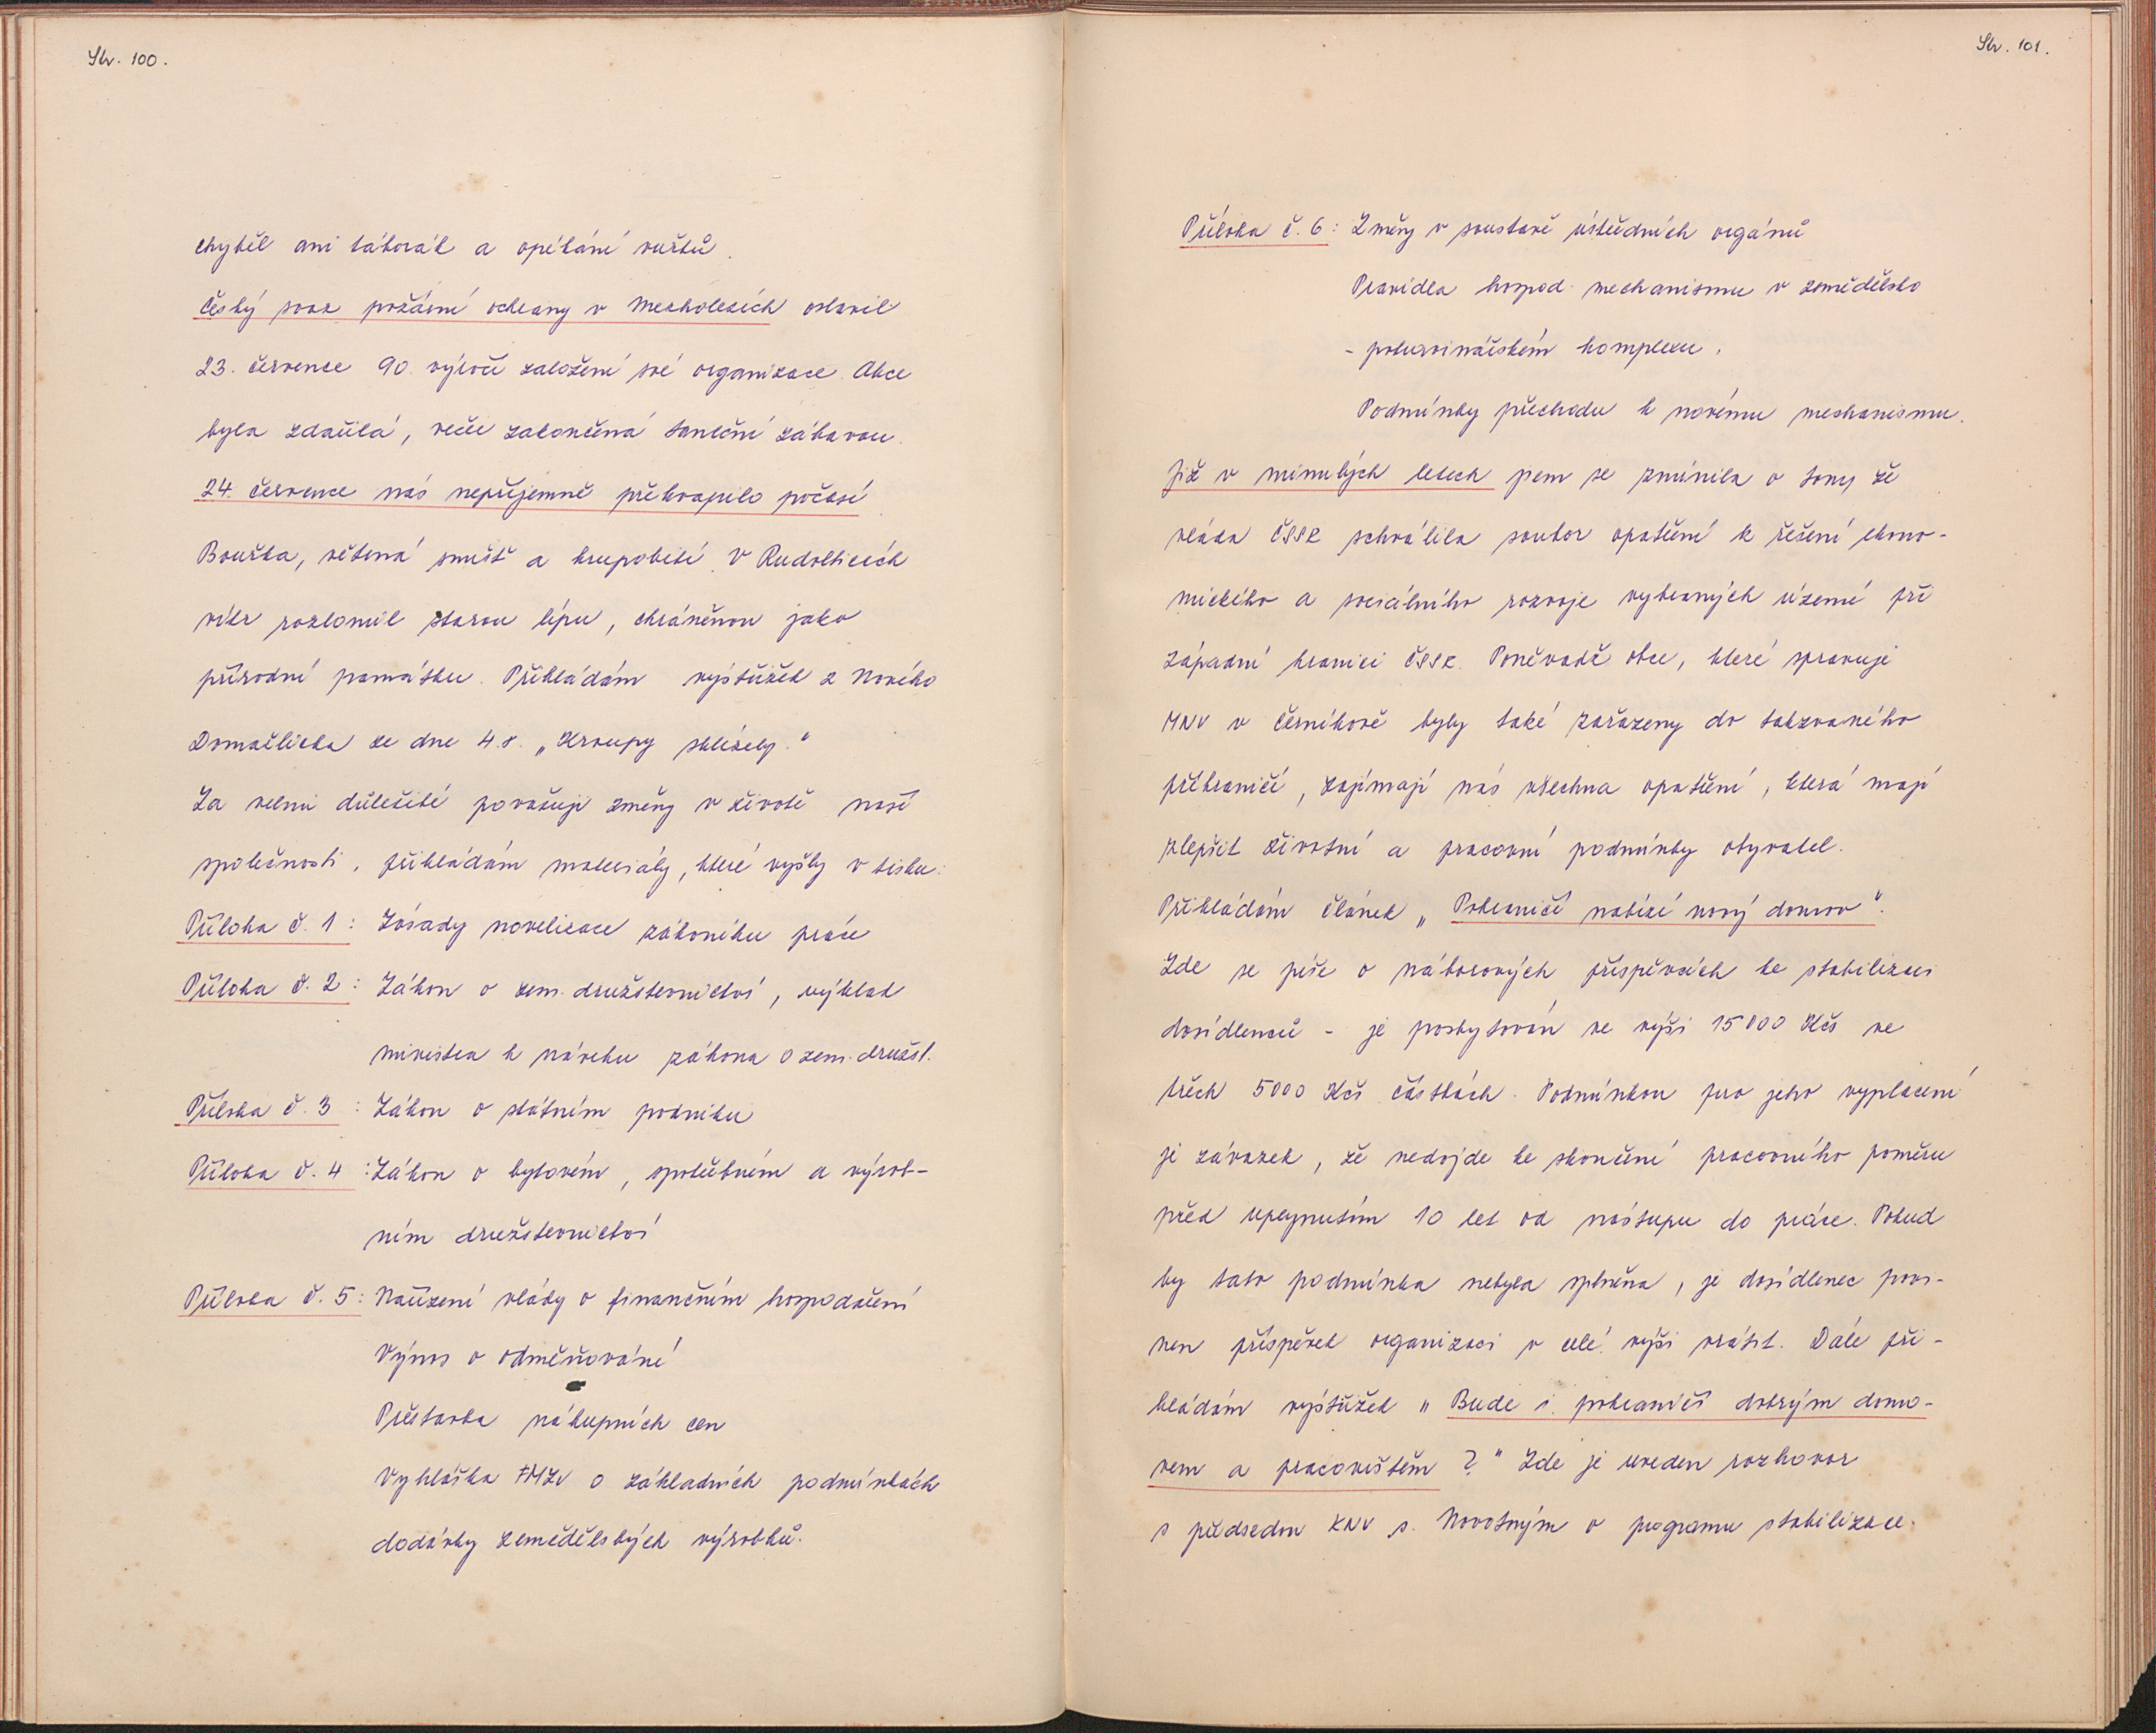 Str. 100.
chyběl ani táborák a opékání vuřtů.
Český svaz požární ochrany v Mezholezích oslavil
23. července 90. výročí založení své organizace. Akce
byla zdařilá, večer zakončená taneční zábavou.
24. července nás nepříjemně překvapilo počasí.
Bouřka, větrná smršť a krupobití. V Rudolticích
vítr rozlomil starou lípu, chráněnou jako
přírodní památku. Přikládám výstřižek z Nového
Domažlicka ze dne 4.8. „Kroupy sklízely."
Za velmi důležité považuji změny v životě naší
společnosti, přikládám materiály, které vyšly v tisku:
Příloha č. 1: Zásady novelizace zákoníku práce
Příloha č. 2: Zákon o zem. družstevnictví, výklad
ministra k návrhu zákona o zem. družst.
Příloha č. 3: Zákon o státním podniku
Příloha č. 4: Zákon o bytovém, spotřebním a výrob-
ním družstevnictví
Příloha č. 5: Nařízení vlády o finančním hospodaření
Výnos o odměňování
Přestavba nákupních cen
Vyhláška FMZV o základních podmínkách
dodávky zemědělských výrobků.
Str. 101.
Příloha č. 6: Změny v soustavě ústředních orgánů
Pravidla hospod. mechanismu v zemědělsko
- potravinářském komplexu.
Podmínky přechodu k novému mechanismu.
Již v minulých letech jsem se zmínila o tom, že
vláda ČSSR schválila soubor opatření k řešení ekono-
mického a sociálního rozvoje vybraných území při
západní hranici ČSSR. Poněvadž obce, které spravuje
MNV v Černíkově byly také zařazeny do takzvaného
příhraničí, zajímají nás všechna opatření, která mají
zlepšit životní a pracovní podmínky obyvatel.
Přikládám článek „Pohraničí nabízí nový domov".
Zde se píše o náborových příspěvcích ke stabilizaci
dosídlenců - je poskytován ve výši 15000 Kčs ve
třech 5000 Kčs částkách. Podmínkou pro jeho vyplacení
je závazek, že nedojde ke skončení pracovního poměru
před uplynutím 10 let od nástupu do práce. Pokud
by tato podmínka nebyla splněna, je dosídlenec povi-
nen příspěvek organizaci v celé výši vrátit. Dále při-
kládám výstřižek „Bude i pohraničí dobrým domo-
vem a pracovištěm?" Zde je uveden rozhovor
s předsedou KNV s. Novotným o programu stabilizace.